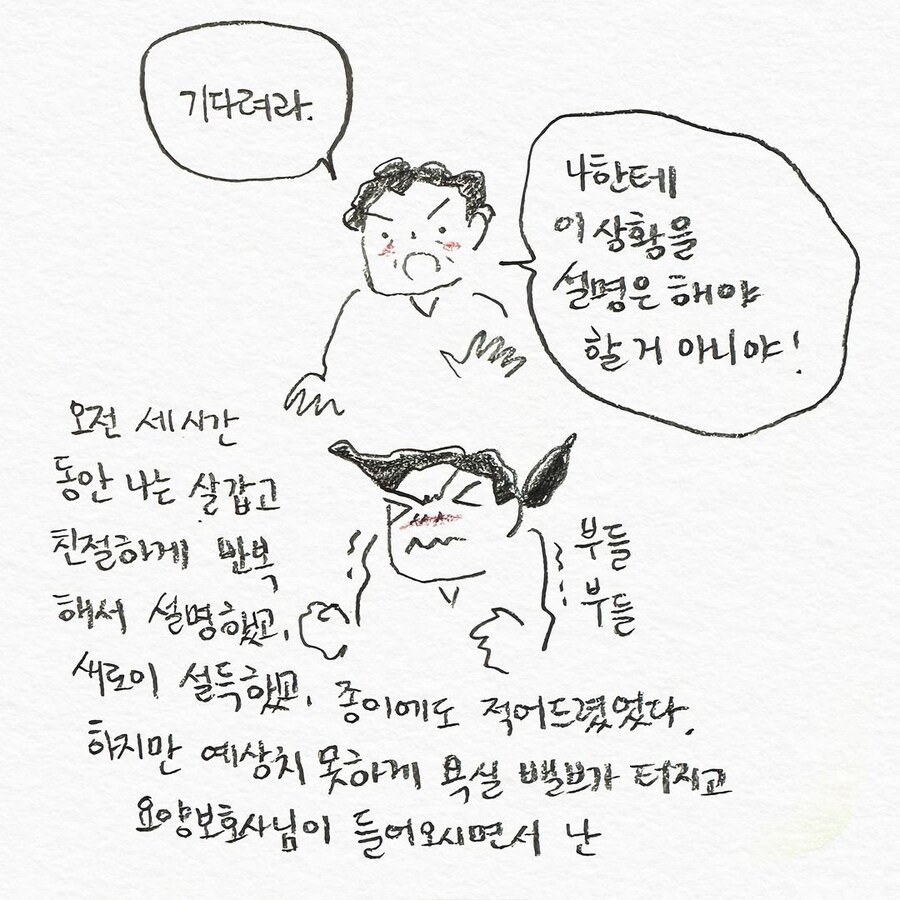 기다려라.
나한테
이 상황을
설명은 해야
할 거 아니야!
오전 세시간
동안 나는 살갑고
친절하게 반복
해서 설명했고,
새로이 설득했고, 종이에도 적어드렸었다.
하지만 예상치 못하게 욕실 밸브가 터지고
요양보호사님이 들어오시면서 난
부들
부들